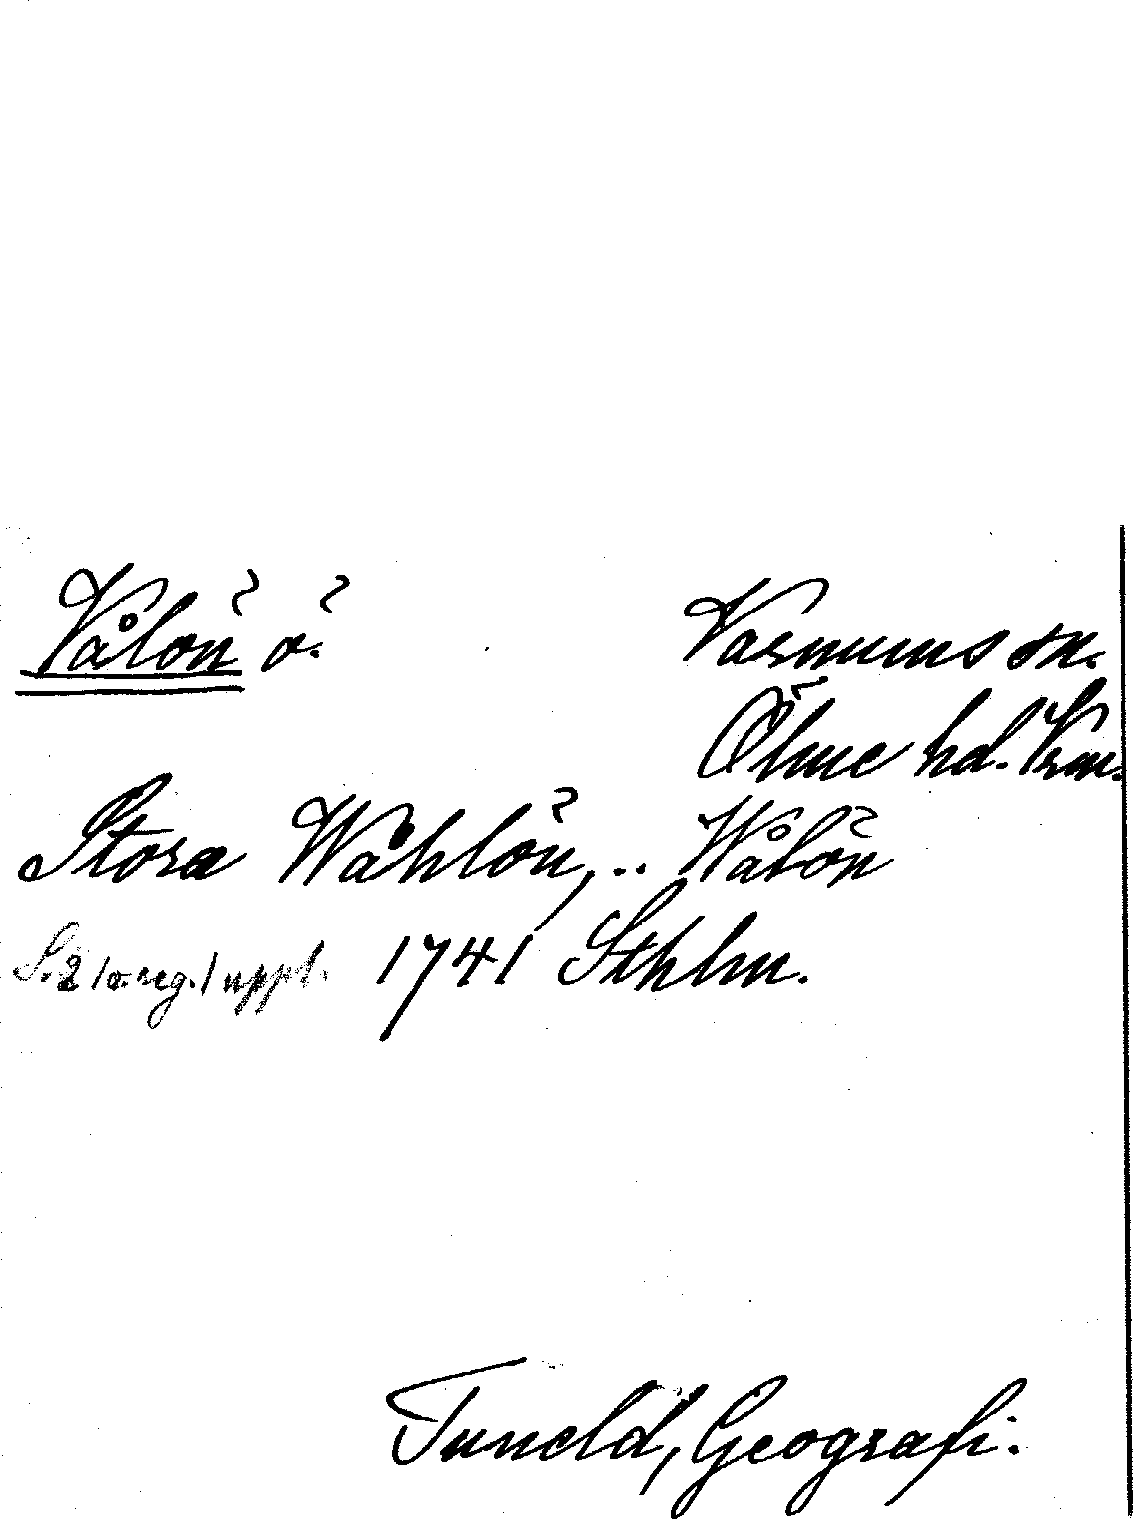 Vålön ö.
Varnums sn.
Ölme hd. Vrm.
Stora Wåhlön, .. Wålön
S. 2 /o.reg./ uppl. 1741 Sthlm.
Tuneld, Geografi.